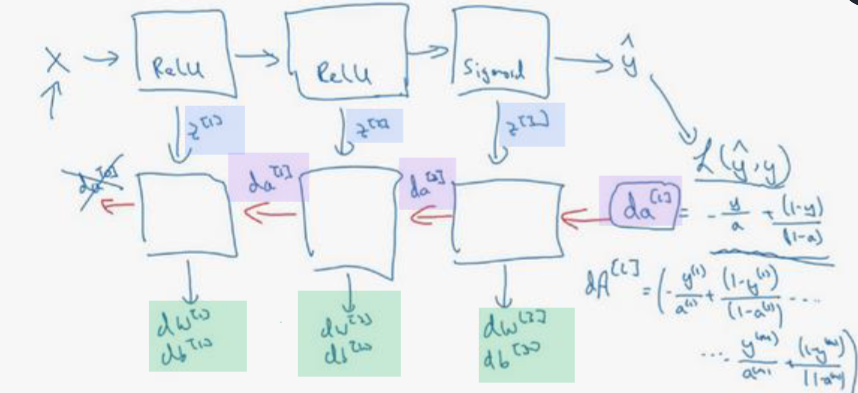 X → ReLU → ReLU → Sigmoid → ŷ
z^[1] z^[2] z^[3]
L(ŷ, y)
da^[0] da^[1] da^[2] da^[L] = -y/a + (1-y)/(1-a)
dA^[L] = (-y^(1)/a^(1) + (1-y^(1))/(1-a^(1)) ....
... y^(m)/a^(m) + (1-y^(m))/(1-a^(m)))
dW^[1] dW^[2] dW^[3]
db^[1] db^[2] db^[3]